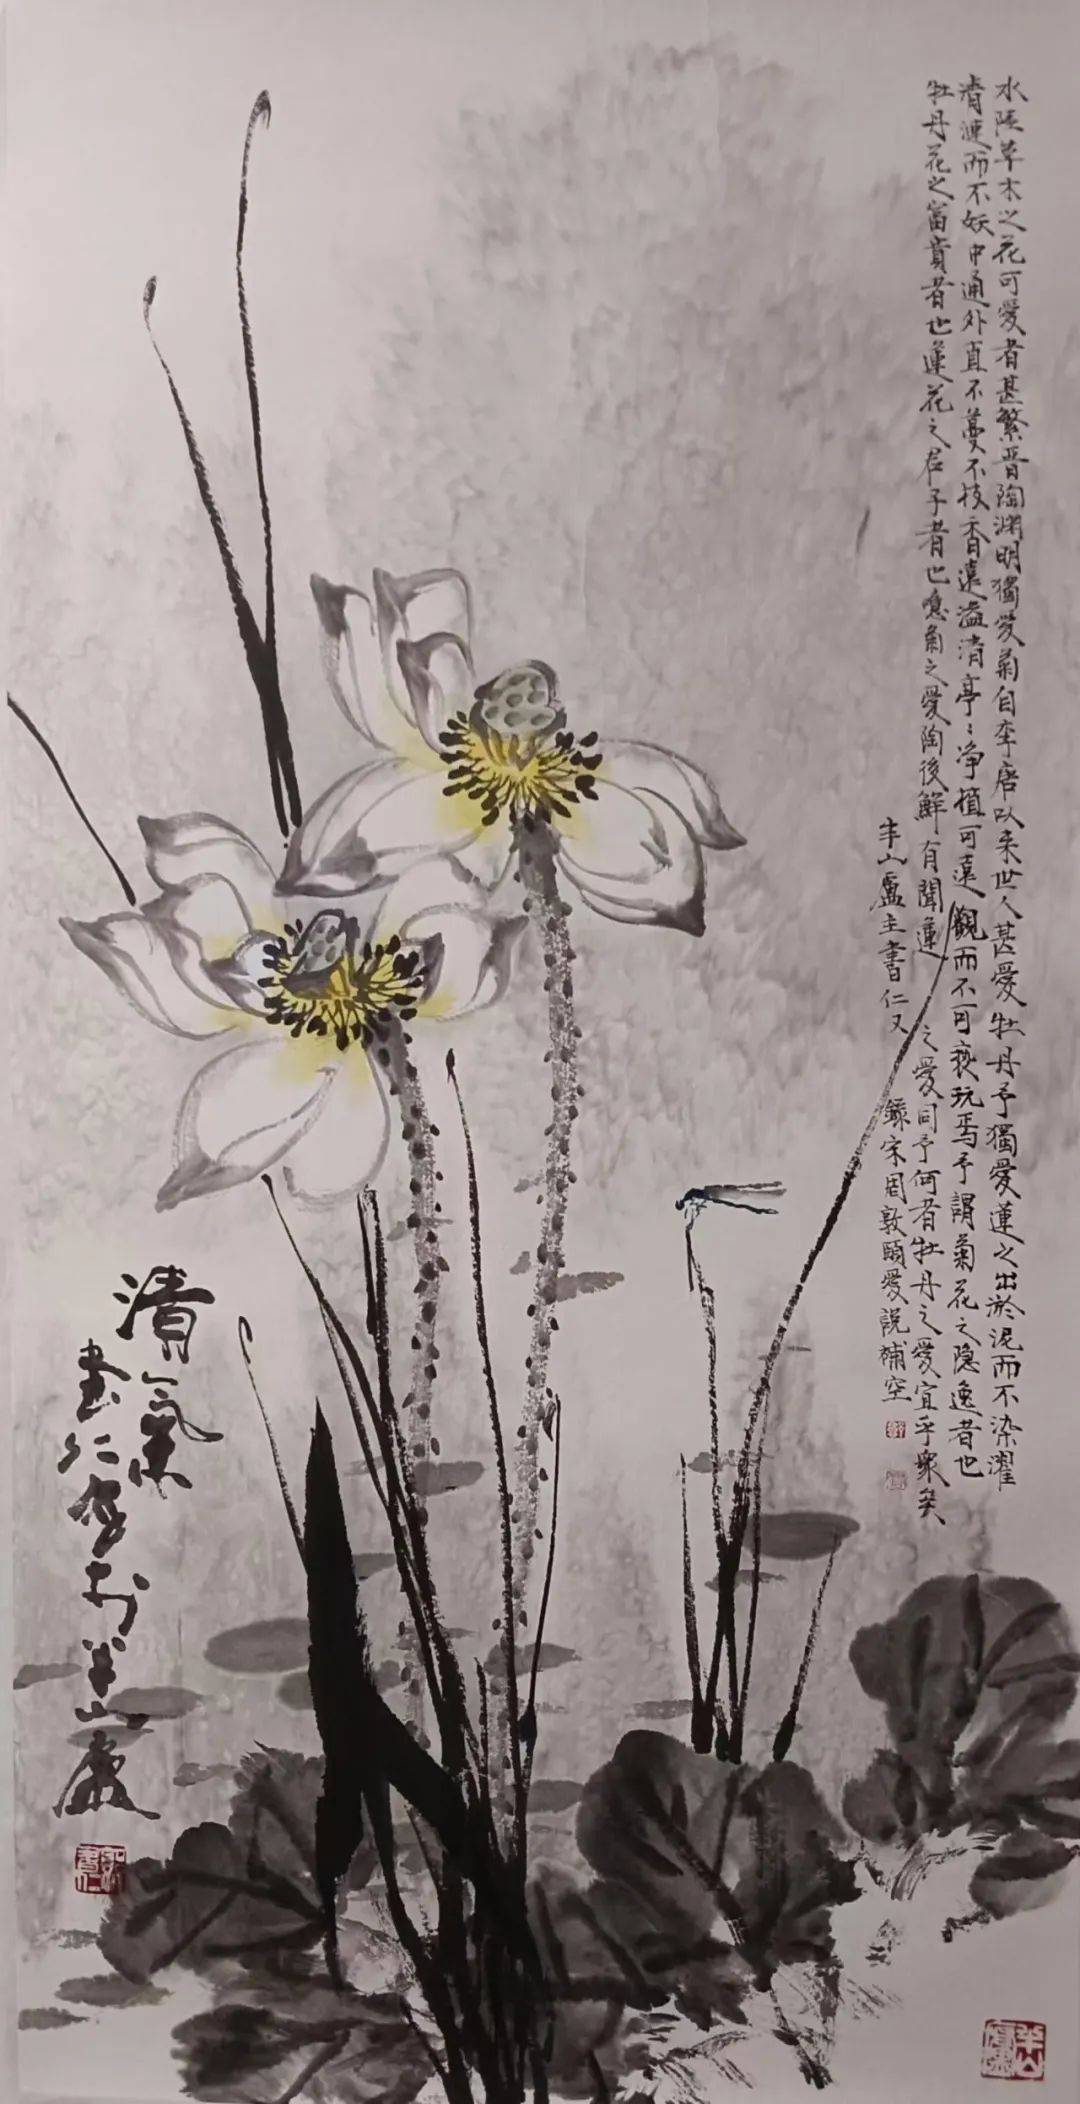 水陸草木之花可愛者甚繁晋陶渊明獨愛菊自李唐以来世人甚愛牡丹予獨愛蓮之出淤泥而不染濯
清漣而不妖中通外直不蔓不枝香遠溢清亭〻净植可遠觀而不可褻玩焉予謂菊花之隐逸者也
牡丹花之富貴者也蓮花之君子者也噫菊之愛陶後鮮有聞蓮之愛同予何者牡丹之愛宜乎衆矣
半山盧主書仁又錄宋周敦頤愛説補空
清氣
書仁写於半山廬